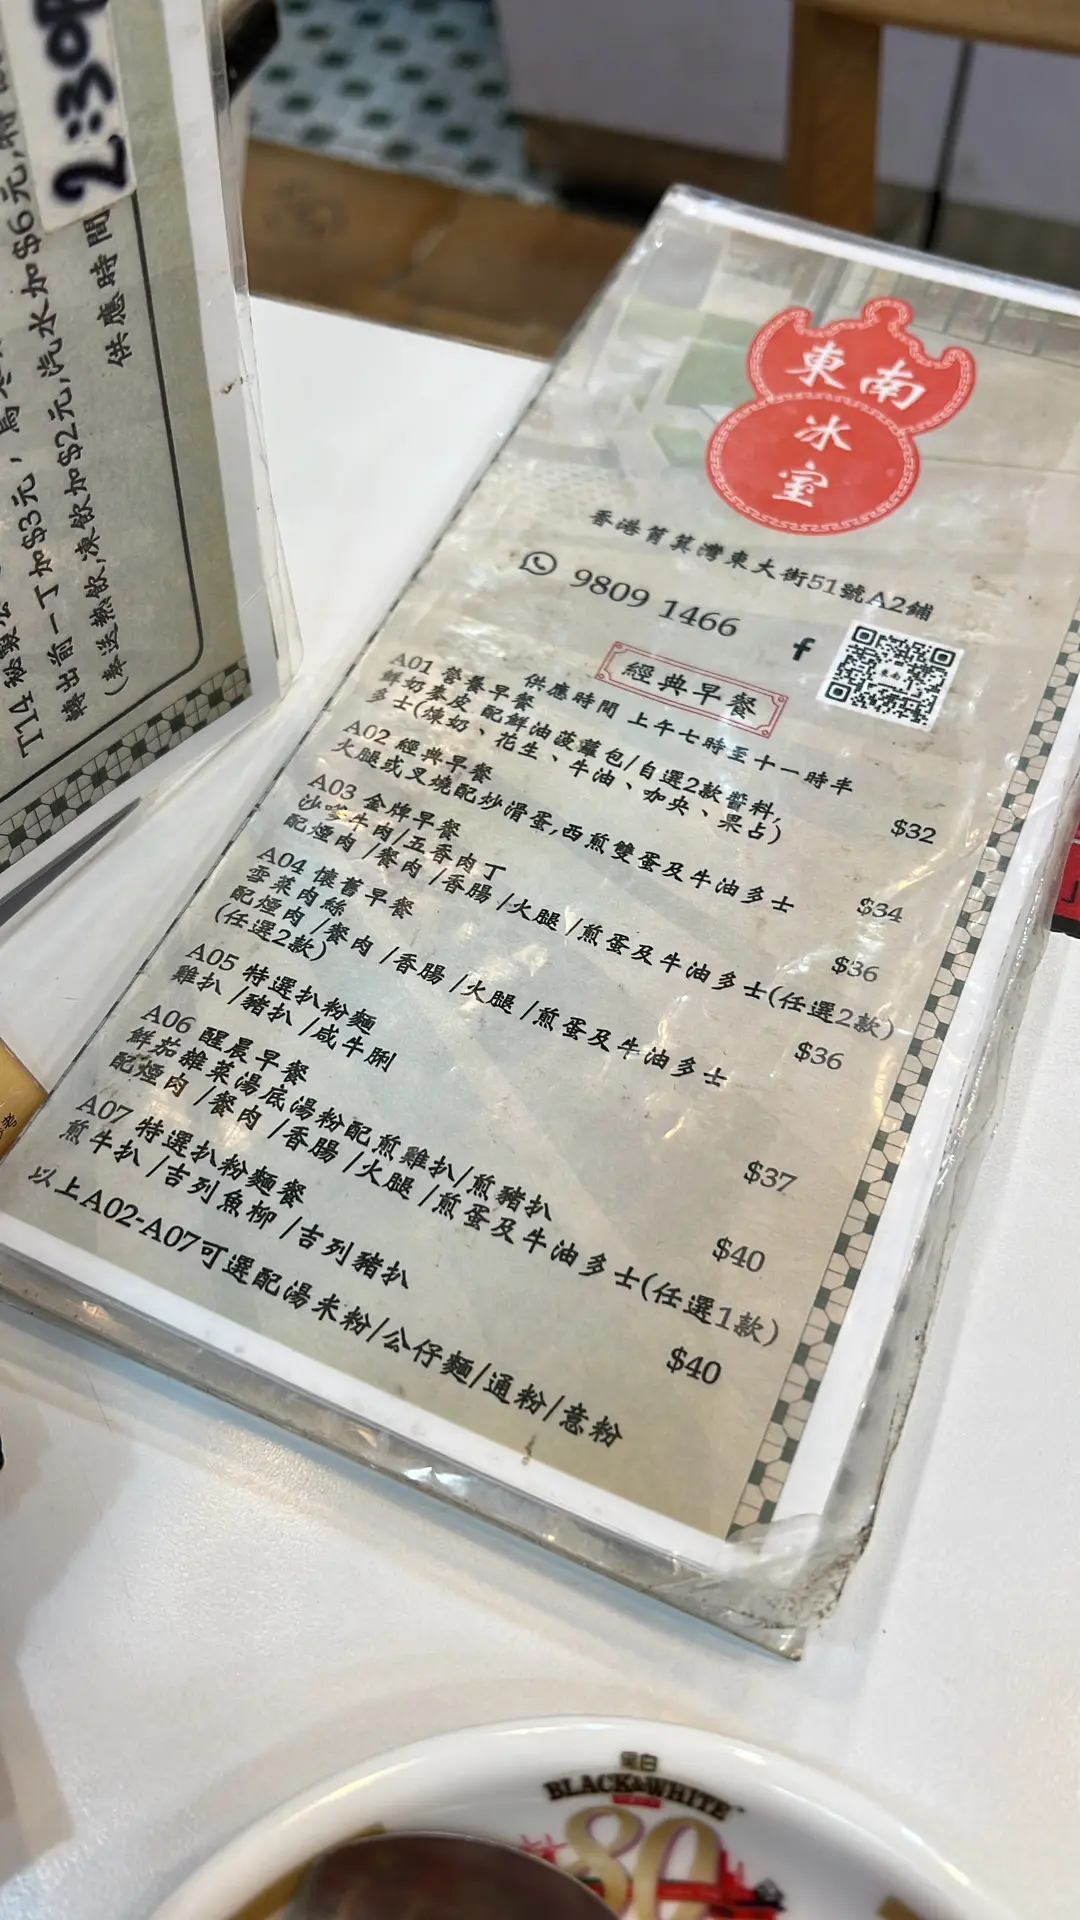 2:30
T14
轉出前一丁加$3元,汽水加$6元,
(奉送熱飲,凍飲加$2元,
供應時間
東南
冰
室
香港筲箕灣東大街51號A2鋪
9809 1466
f
東南
經典早餐
供應時間 上午七時至十一時半
A01 營養早餐
鮮奶麥皮 配鮮油菠蘿包/自選2款醬料,
多士(煉奶、花生、牛油、加央、果占) $32
A02 經典早餐
火腿或叉燒配炒滑蛋,西煎雙蛋及牛油多士 $34
A03 金牌早餐
沙嗲牛肉/五香肉丁 $36
配煙肉 /餐肉 /香腸 /火腿 /煎蛋及牛油多士(任選2款)
A04 懷舊早餐
雪菜肉絲 $36
配煙肉 /餐肉 /香腸 /火腿 /煎蛋及牛油多士
(任選2款)
A05 特選扒粉麵
雞扒 /豬扒 /咸牛脷 $37
A06 醒晨早餐
鮮茄雜菜湯底湯粉配煎雞扒/煎豬扒 $40
配煙肉 /餐肉 /香腸 /火腿 /煎蛋及牛油多士(任選1款)
A07 特選扒粉麵餐
煎牛扒 /吉列魚柳 /吉列豬扒 $40
以上A02-A07可選配湯米粉/公仔麵/通粉/意粉
黑白
BLACK&WHITE
80